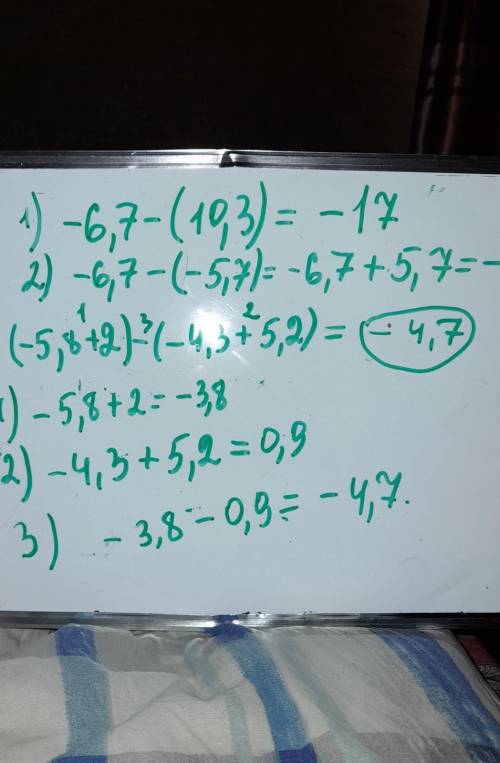 1) -6,7-(10,3)= -17
2) -6,7-(-5,7)=-6,7+5,7=-
(-5,8+2)-(-4,3+5,2)= -4,7
1 3 2
1) -5,8+2=-3,8
2) -4,3+5,2=0,9
3) -3,8-0,9= -4,7.